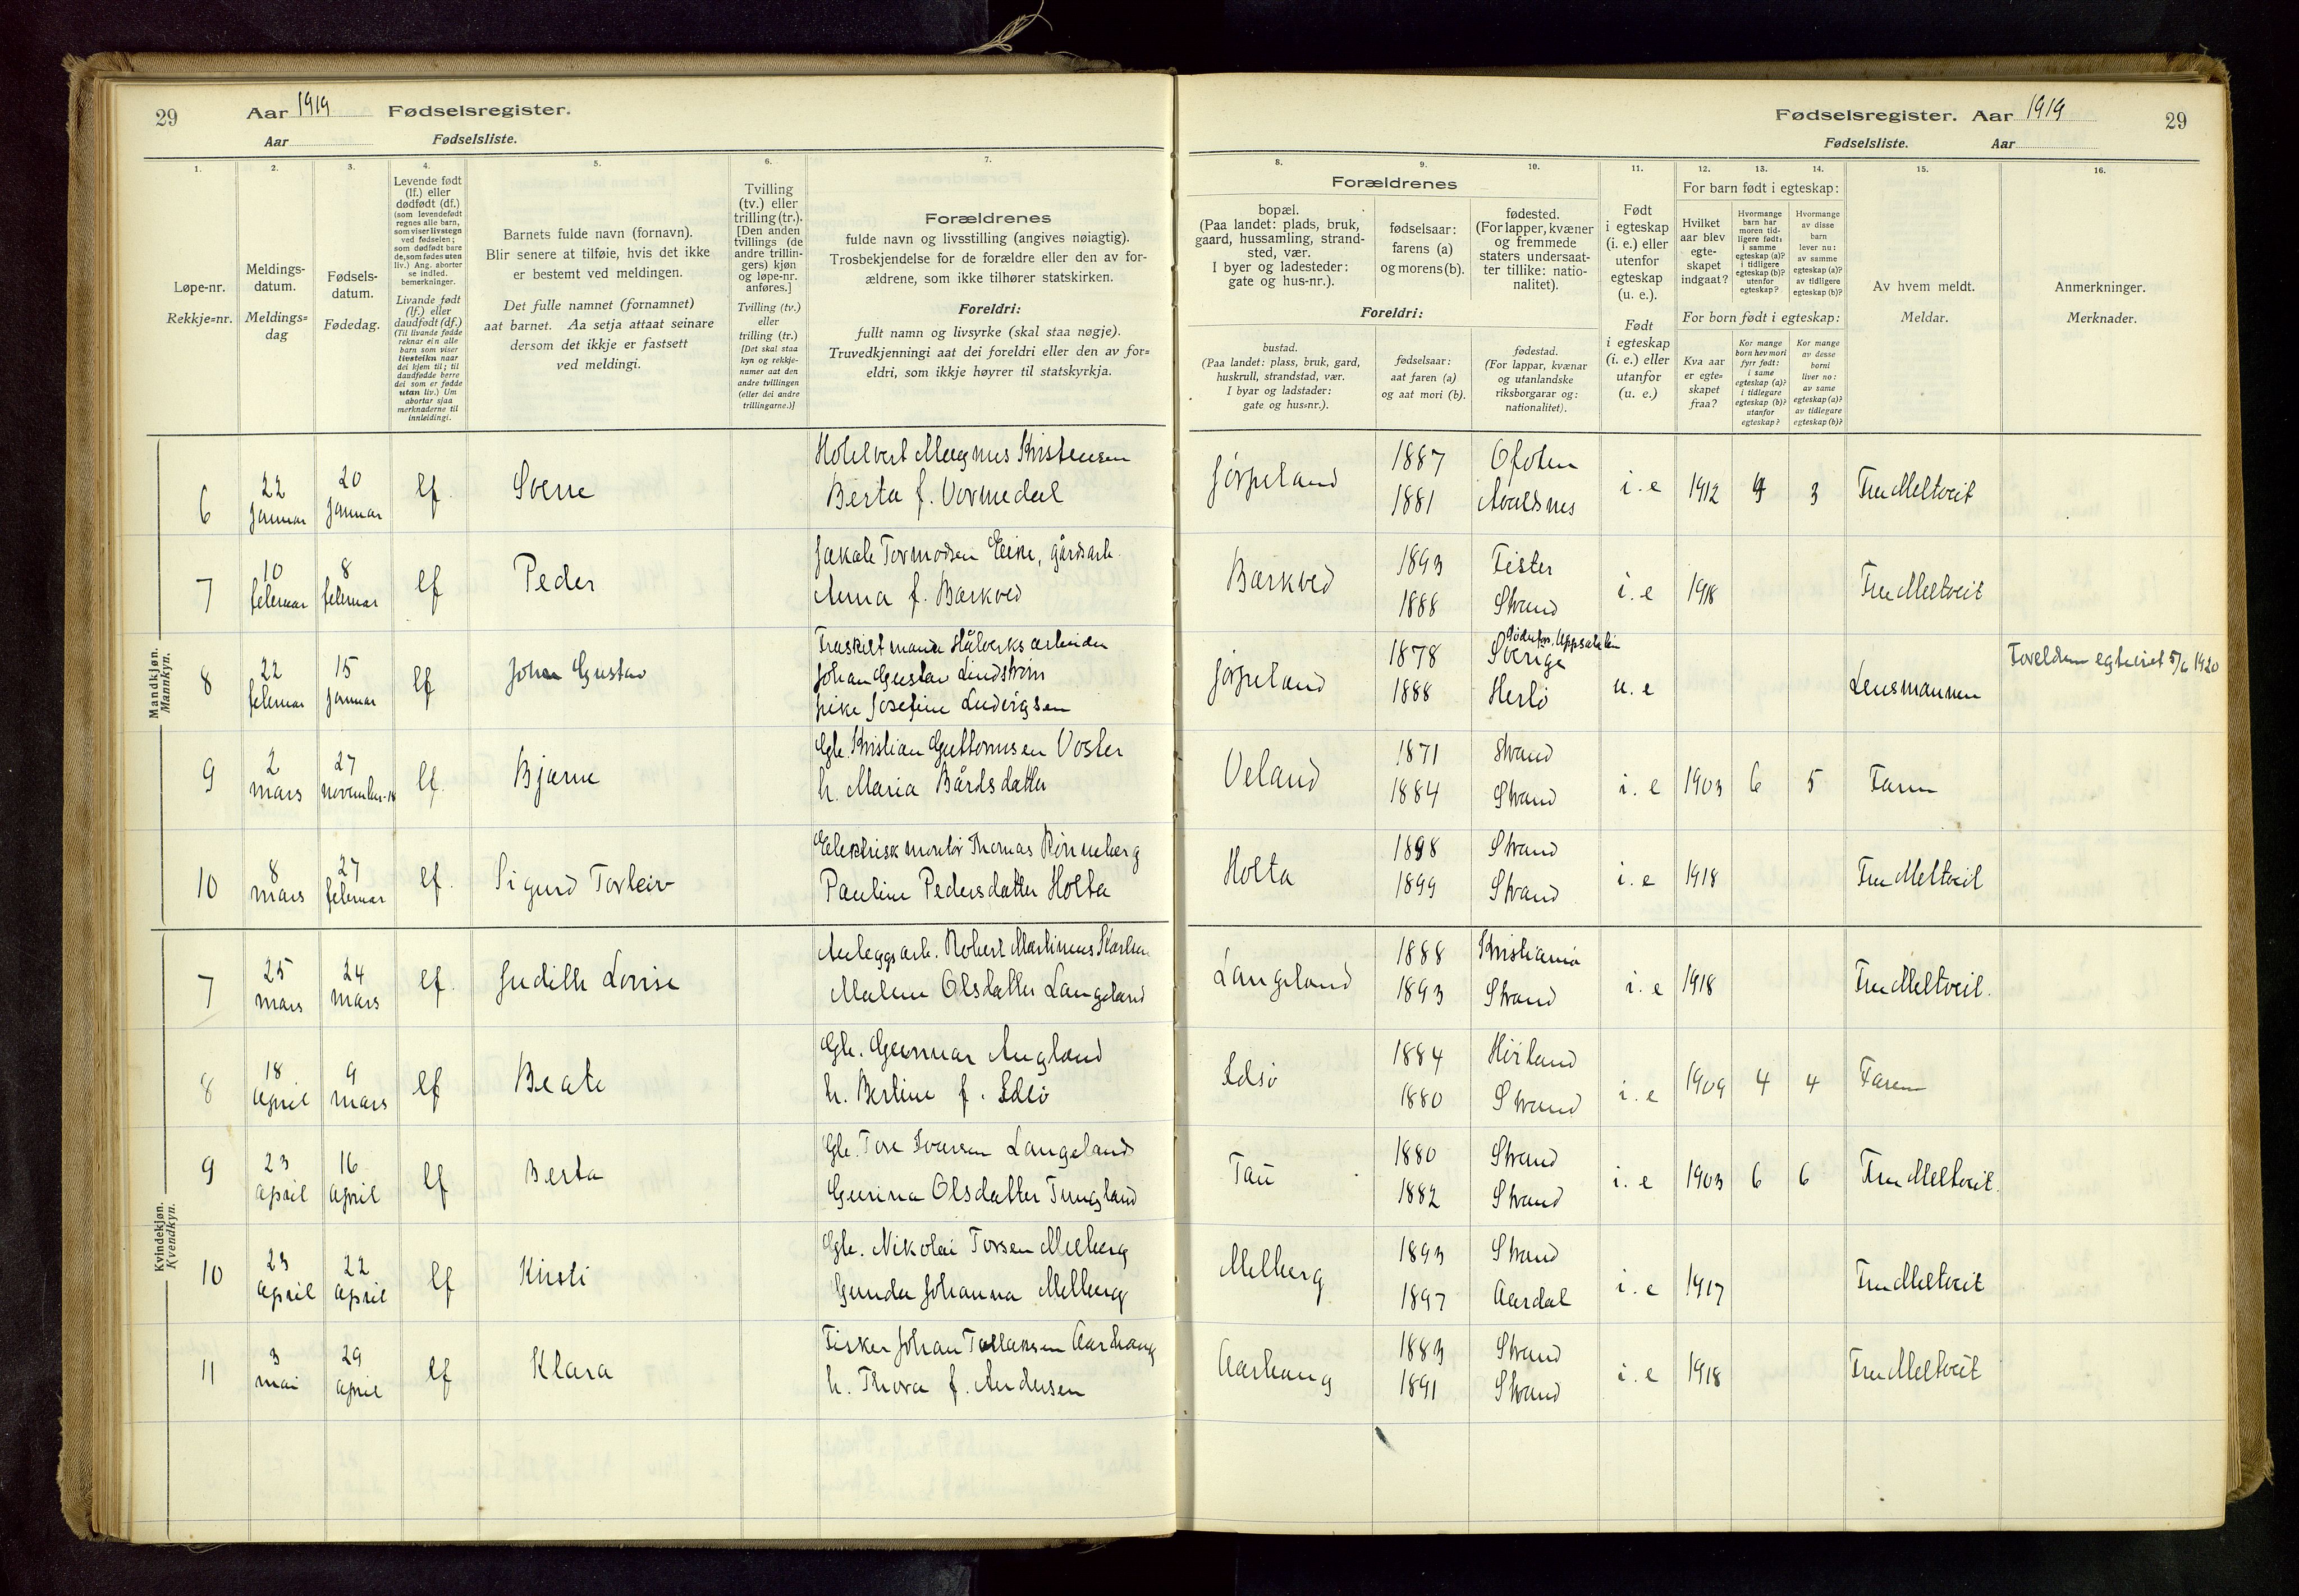 29
Aar 1919 Fødselsregister.
Aar Fødselsliste.
Fødselsregister. Aar 1919
29
Fødselsliste. Aar
1. 2. 3. 4. 5. 6. 7.
Løpe-nr.
Rekkje=nr.
Meldings-
datum.
Meldings=
dag
Fødsels-
datum.
Fødedag.
Levende født
(lf.) eller
dødfødt (df.)
(som levendefødt
regnes alle barn,
som viser livstegn
ved fødselen;
som dødfødt bare
de, som fødes uten
liv.) Ang. aborter
se indled.
bemerkninger.
Livande født
(lf.) eller
daudfødt (df.)
(Til livande fødde
reknar ein alle
born som viser
livsteikn naar
dei kjem til; til
daudfødde berre
dei som er fødde
utan liv.) Um
abortar sjaa
merknaderne til
innleidingi.
Barnets fulde navn (fornavn).
Blir senere at tilføie, hvis det ikke
er bestemt ved meldingen.
Det fulle namnet (fornamnet)
aat barnet. Aa setja attaat seinare
dersom det ikkje er fastsett
ved meldingi.
Tvilling
(tv.) eller
trilling (tr.).
[Den anden
tvillings (de
andre trillin-
gers) kjøn
og løpe-nr.
anføres.]
Tvilling (tv.)
eller
trilling (tr.)
[Det skal staa
kyn og rekkje-
numer aat den
andre tvillingen
(eller dei andre
trillingarne.)]
Forældrenes
fulde navn og livsstilling (angives nøiagtig).
Trosbekjendelse for de forældre eller den av for-
ældrene, som ikke tilhører statskirken.
Foreldri:
fullt namn og livsyrke (skal staa nøgje).
Truvedkjenningi aat dei foreldri eller den av for=
eldri, som ikkje høyrer til statskyrkja.
8. 9. 10. 11. 12. 13. 14. 15. 16.
Forældrenes
bopæl.
(Paa landet: plads, bruk,
gaard, hussamling, strand-
sted, vær.
I byer og ladesteder:
gate og hus-nr.).
fødselsaar:
farens (a)
og morens (b).
fødested.
(For lapper, kvæner
og fremmede
staters undersaat-
ter tillike: natio-
nalitet).
Foreldri:
bustad.
(Paa landet: plass, bruk, gard,
huskrull, strandstad, vær.
I byar og ladstader:
gate og hus=nr.).
fødselsaar:
aat faren (a)
og aat mori (b).
fødestad.
(For lappar, kvænar
og utanlandske
riksborgarar og:
nationalitet).
Født
i egteskap
(i. e.) eller
utenfor
egteskap
(u. e.).
Født
i egteskap
(i. e.) eller
utanfor
(u. e.)
For barn født i egteskap:
Hvilket
aar blev
egte-
skapet
indgaat?
Hvormange
barn har
moren tid-
ligere født:
i samme
egteskap (a)?
i tidligere
egteskap (b)?
utenfor
egteskap?
Hvormange
av disse
barn
lever nu:
av samme
egteskap (a)?
av tidligere
egteskap (b)?
For born født i egteskap:
Kva aar
er egte-
skapet
fraa?
Kor mange
born hev mori
fyrr født:
i same
egteskap (a)?
i tidlegare
egteskap (b)?
utanfor
egteskap?
Kor mange
av desse
borni
liver no:
av same
egteskap (a)?
av tidlegare
egteskap (b)?
Av hvem meldt.
Meldar.
Anmerkninger.
Merknader.
Mandkjøn.
Mannkyn.
6 22 januar 20 januar lf. Sverre
Hotelvert Magnus Kristensen
Berta f. Vormedal
Jørpeland 1887 Ofoten
1881 Avaldsnes i. e 1912 4 3 Fru Meltveit
7 10 februar 8 februar lf Peder
Jakob Tormodsen Eeike, gårdsarb.
Anna f. Barkved
Barkved 1893 Fister
1888 Strand i. e 1918 Fru Meltveit
8 22 februar 15 januar lf Johan Gustav
Fraskilt mand Stålverksarbeider
Johan Gustav Lindstrøm
Josefine Ludvigsen
Jørpeland 1878 Sverige
1888 Herlö u. e Lensmannen
Foreldrene egteviet 5/6 1920
9 2 mars 27 november-18 lf. Bjarne
Gb. Kristian Guttormsen Voster
h. Maria Bårdsdatter
Veland 1871 Strand
1884 Strand i. e 1903 6 5 Faren
10 8 mars 27 februar lf. Sigurd Torleiv
Elektrisk montör Thomas Rönneberg
Pauline Pedersdatter Holta
Holta 1898 Strand
1899 Strand i. e 1918 Fru Meltveit
Kvindekjøn.
Kvendkyn.
7 25 mars 24 mars lf. Judith Lovise
Anleggsarb. Robert Martinius Karlsen
Malene Olsdatter Langeland
Langeland 1888 Kristiania
1893 Strand i. e 1918 Fru Meltveit.
8 18 april 9 mars lf Beate
Gb. Gunnar Augland
h. Bertine f. Idsö
Idsö 1884 Hörland
1880 Strand i. e 1909 4 4 Faren
9 23 april 16 april lf Berta
Gb. Tore Iversen Langeland
Gurina Olsdatter Tungland
Tau 1880 Strand
1882 Strand i. e 1903 6 6 Fru Meltveit.
10 23 april 22 april lf Kirsti
Gb. Nikolai Torsen Melberg
Gunda Johanna Melberg
Melberg 1893 Strand
1897 Aardal i. e 1917 Fru Meltveit
11 3 mai 29 april lf Klara
Fisker Johan Tollaksen Aarhaug
h. Thora f. Andersen
Aarhaug 1883 Strand
1891 Strand i. e 1918 Fru Meltveit